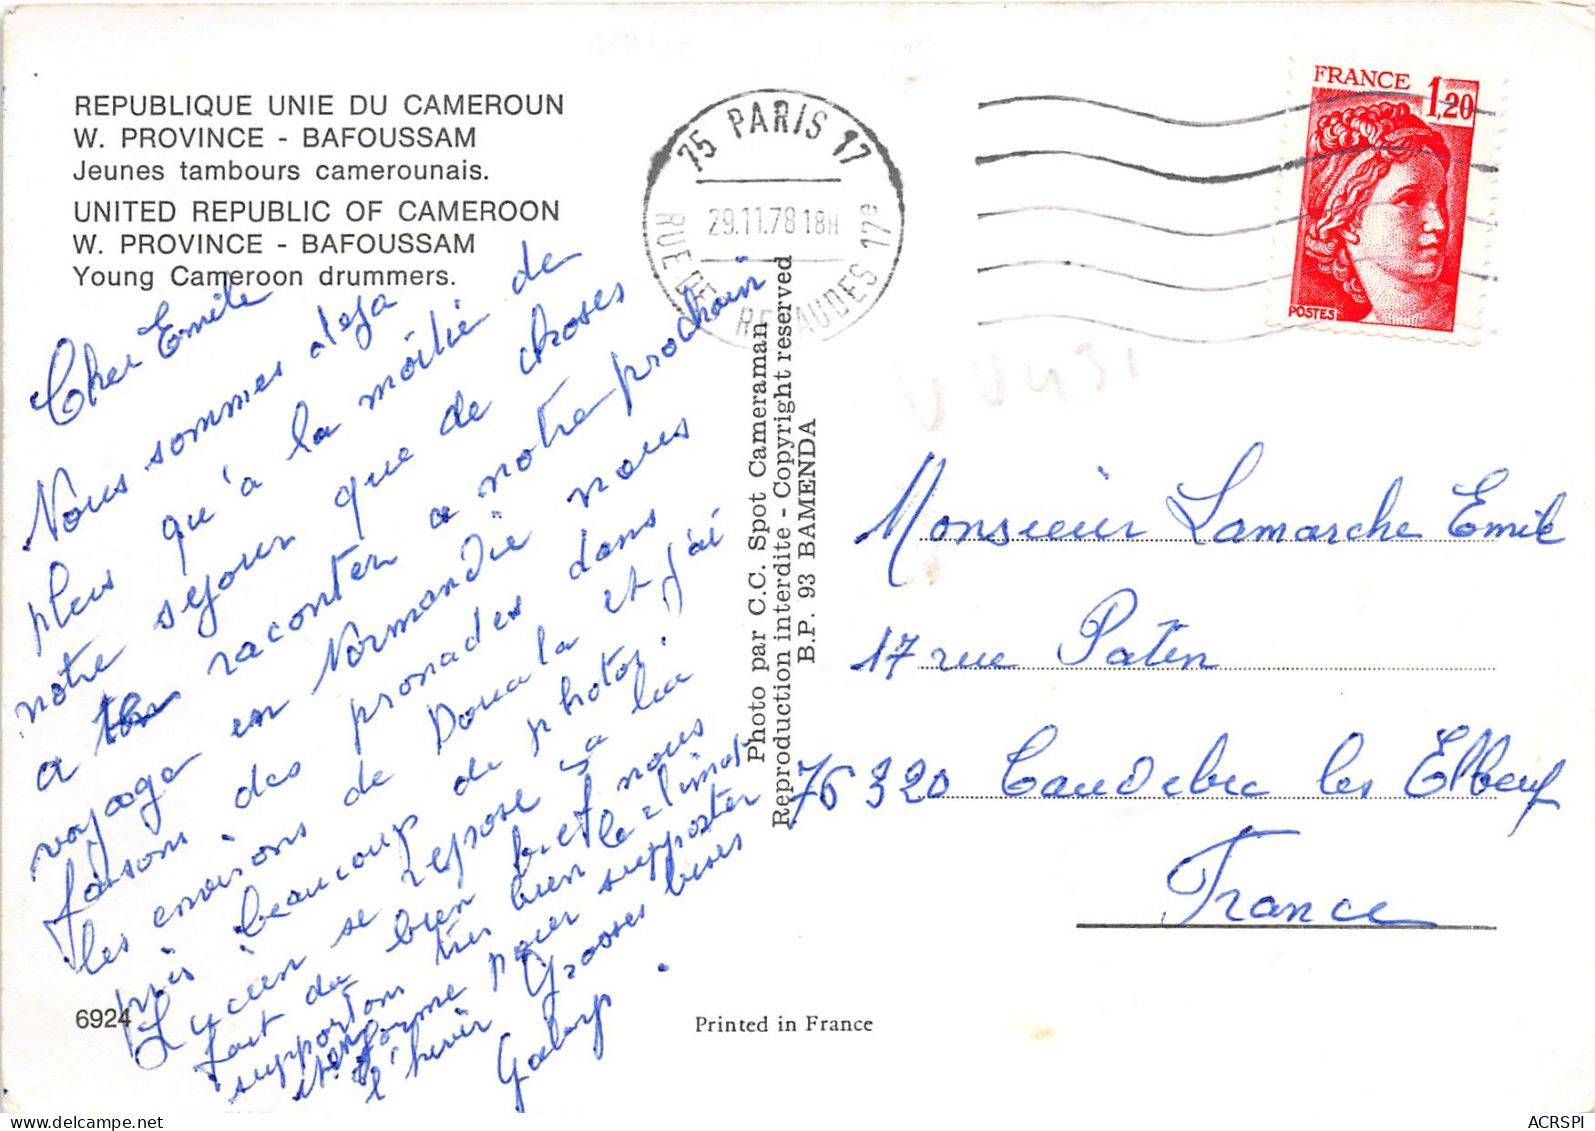 REPUBLIQUE UNIE DU CAMEROUN
W. PROVINCE - BAFOUSSAM
Jeunes tambours camerounais.
UNITED REPUBLIC OF CAMEROON
W. PROVINCE - BAFOUSSAM
Young Cameroon drummers.
Cher Emile
Nous sommes deja
plus qu'à la moitié de
notre sejour que de choses
a raconter a notre prochain
voyage en Normandie nous
faisons des pronades dans
les environs de Douala et j'ai
pris beaucoup de photos.
Lucien se repose ça lui
fait du bien bref nous
supportons tres bien le climat
en forme pour supporter
l'hiver Grosses bises
Gaby
6924
75 PARIS 17
29.11.78 18H
RUE DE RENAUDES 17e
FRANCE
1,20
POSTES
Photo par C.C. Spot Cameraman
Reproduction interdite - Copyright reserved
B.P. 93 BAMENDA
Monsieur Lamarche Emile
17 rue Patin
76320 Caudebec les Elbeuf
France
Printed in France
ACRSPI